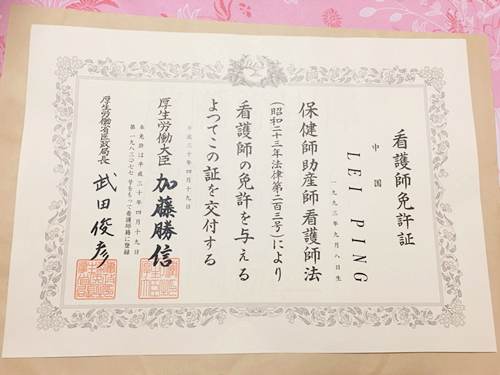 看護師免許証
中国
LEI PING
一九九三年九月八日生
保健師助産師看護師法
(昭和二十三年法律第二百三号)により
看護師の免許を与える
よつてこの証を交付する
平成三十年四月十九日
厚生労働大臣 加藤勝信
本免許は平成三十年四月十九日
第一九八三〇七七号をもって看護師籍に登録
厚生労働省医政局長 武田俊彦